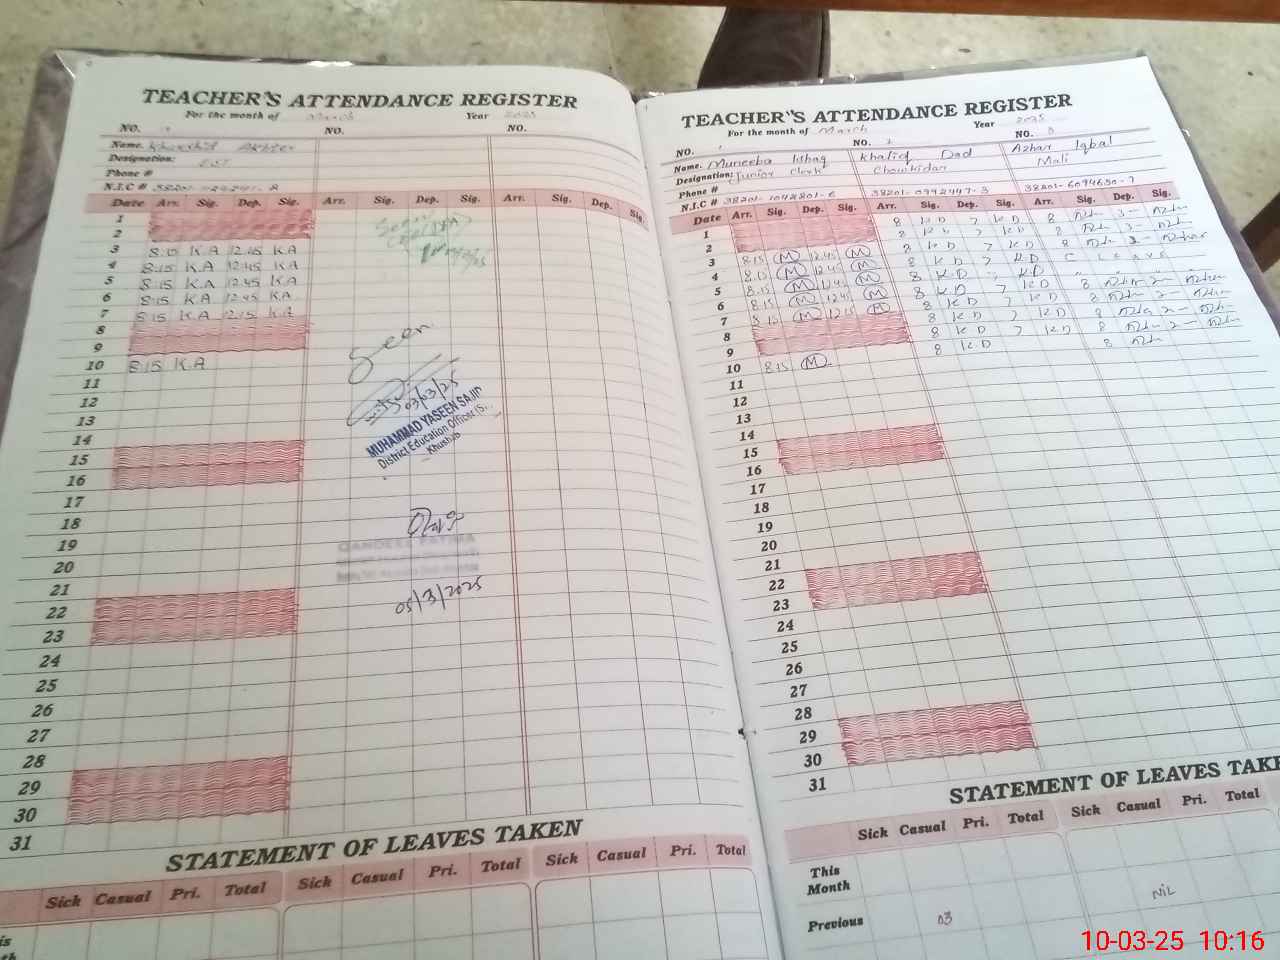 TEACHER'S ATTENDANCE REGISTER
For the month of March Year 2025
NO. NO. NO.
Name. Khurshid Akhter
Designation: EST
Phone #
N.I.C #
Date Arr. Sig. Dep. Sig. Arr. Sig. Dep. Sig. Arr. Sig. Dep. Sig.
1
2
3 8:15 K.A 12:45 K.A
4 8:15 K.A 12:45 K.A
5 8:15 K.A 12:45 K.A
6 8:15 K.A 12:45 K.A
7 8:15 K.A 12:15 K.A
8
9
10 8:15 K.A
11
12
13
14
15
16
17
18
19
20
21
22
23
24
25
26
27
28
29
30
31
Seen
Seen
03/03/25
MUHAMMAD YASEEN SAJID
District Education Officer (S...
Khushab
QANDEEL FATIMA
05/3/2025
STATEMENT OF LEAVES TAKEN
Sick Casual Pri. Total Sick Casual Pri. Total Sick Casual Pri. Total
TEACHER"S ATTENDANCE REGISTER
For the month of March Year 2025
NO. 1 NO. 2 NO. 3
Name. Muneeba Ishaq Khalid Dad Azhar Iqbal
Designation: Junior Clerk Chowkidar Mali
Phone #
N.I.C # 38201-1042801-6 38201-0992447-3 38201-6094630-7
Date Arr. Sig. Dep. Sig. Arr. Sig. Dep. Sig. Arr. Sig. Dep. Sig.
1 8 K D 7 K D 8
2 8 K D 7 K D 8
3 8:15 M 12:45 M 8 K D 7 K D 8
4 8:15 M 12:45 M 8 K D 7 K D C LEAVE
5 8:15 M 12:45 M 8 K D 7 K D
6 8:15 M 12:45 M 8 K D 7 K D 8
7 8:15 M 12:15 M 8 K D 7 K D 8
8 8 K D 7 K D 8
9 8 K D 7 K D 8
10 8:15 M 8 K D 8
11
12
13
14
15
16
17
18
19
20
21
22
23
24
25
26
27
28
29
30
31
STATEMENT OF LEAVES TAKE
Sick Casual Pri. Total Sick Casual Pri. Total
This Month
Previous 03 NIL
10-03-25 10:16